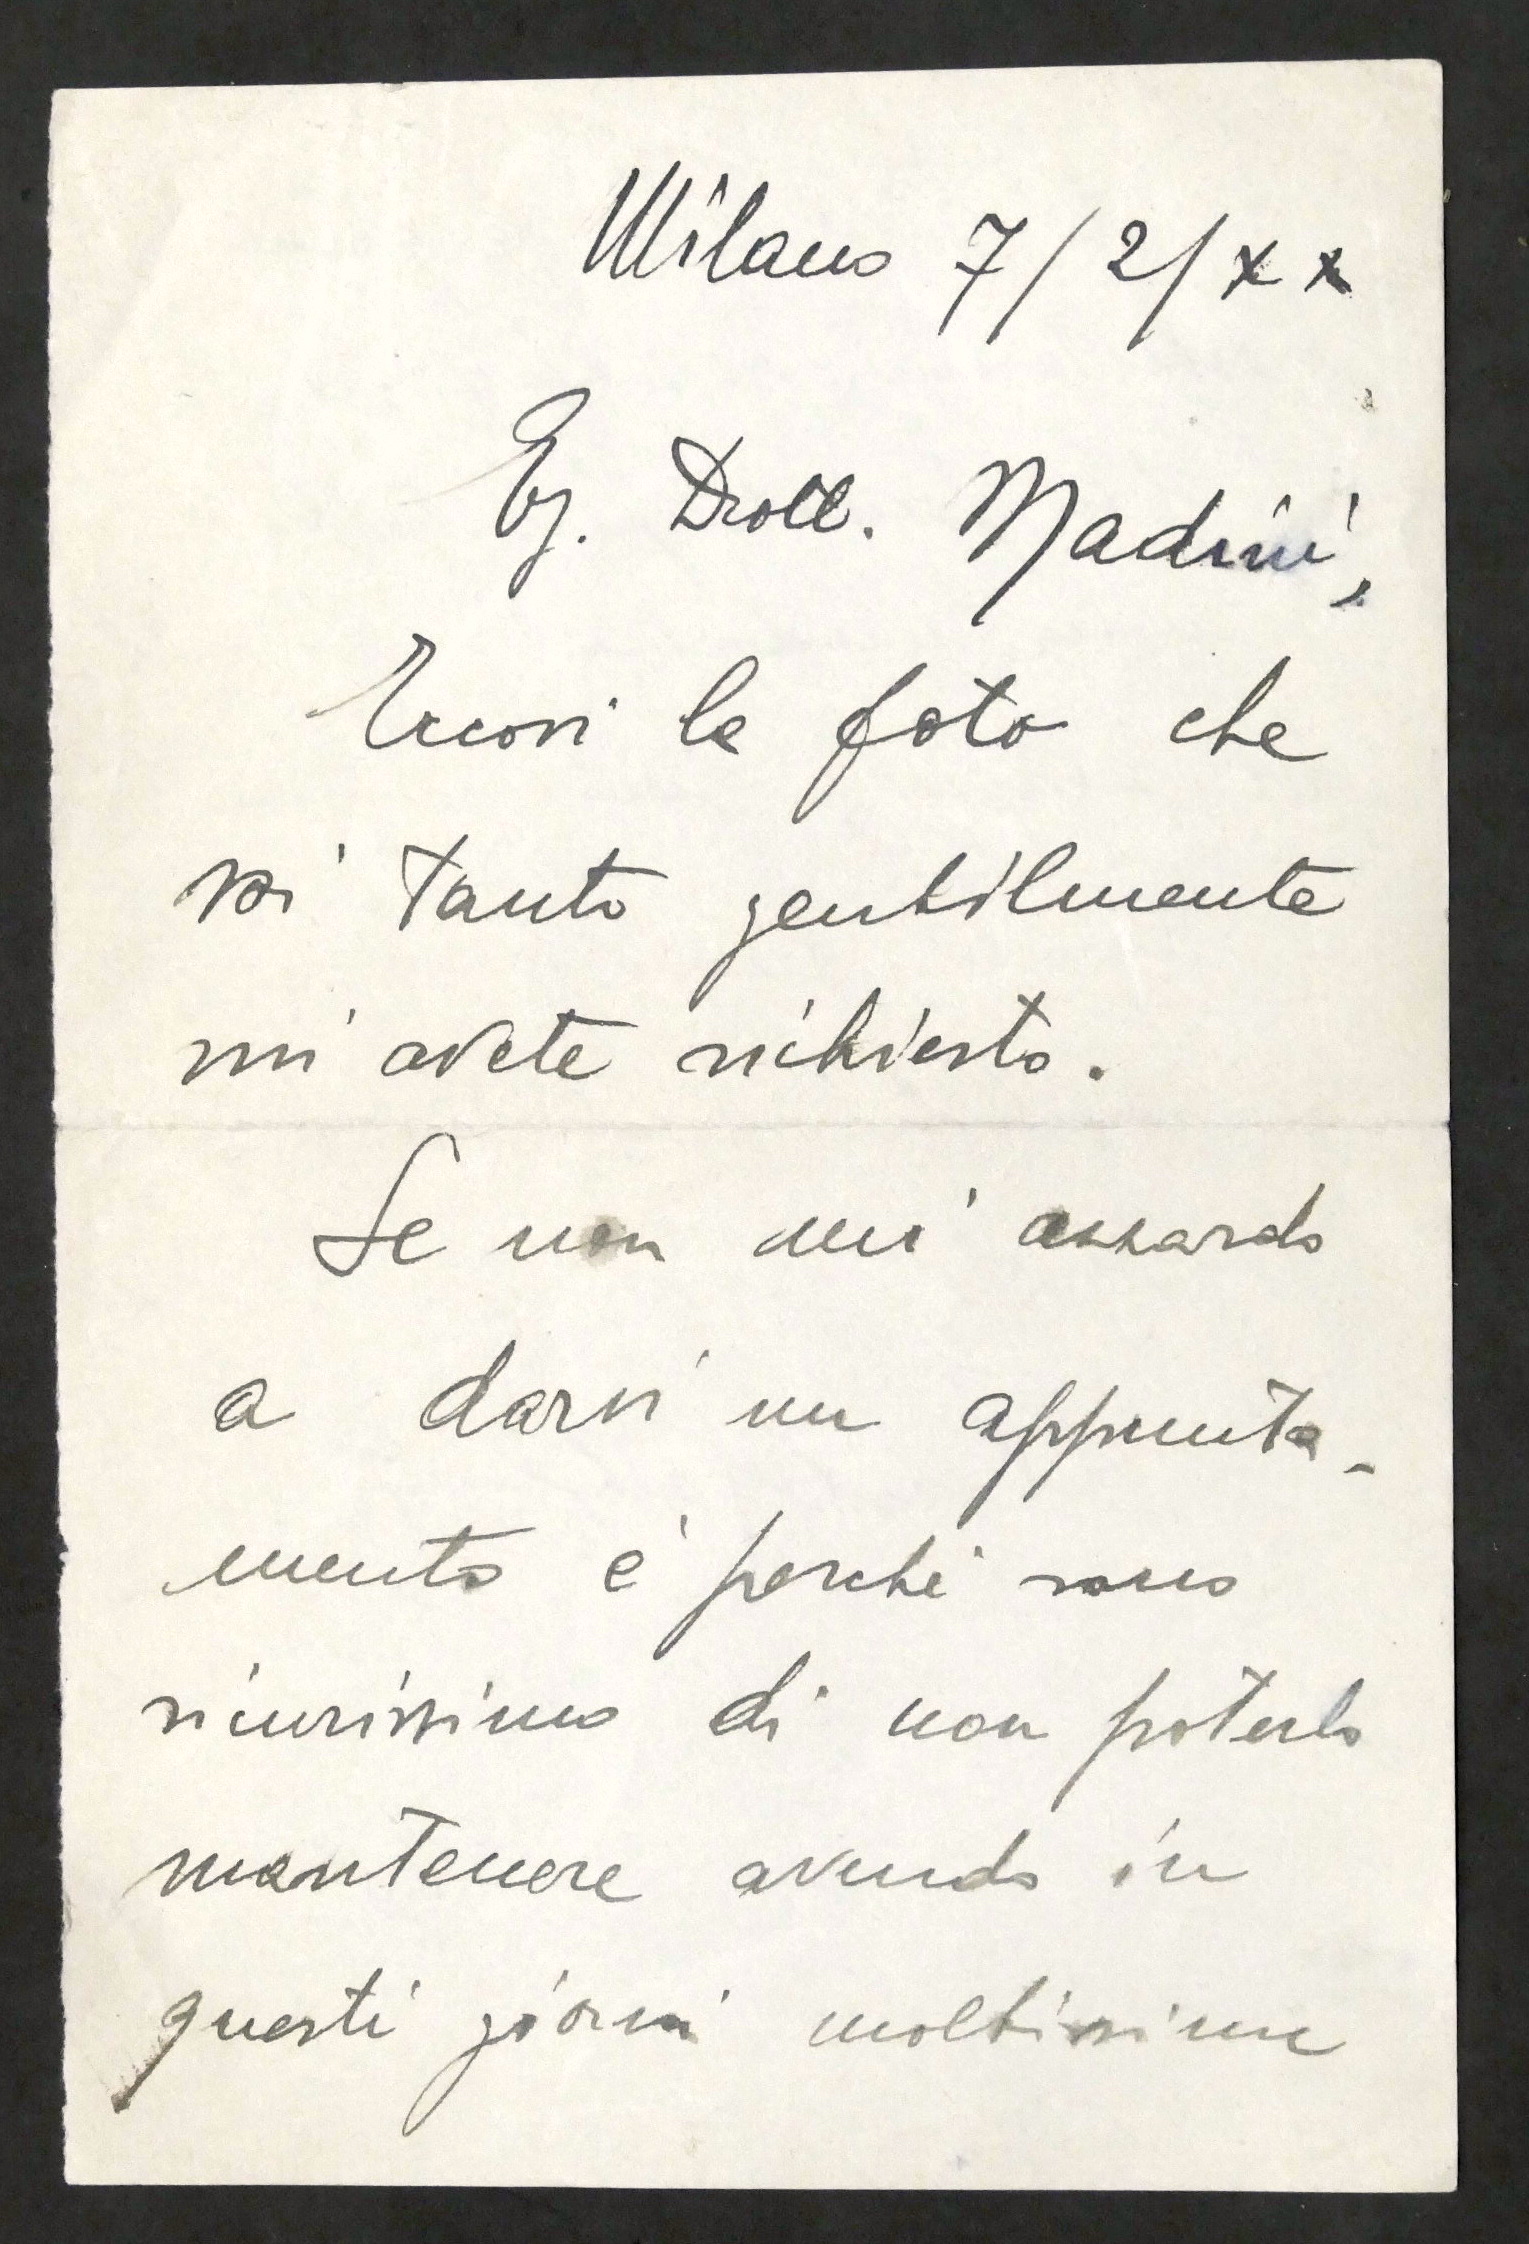 Milano 7/2/XX
Eg. Dott. Nadini,
Eccovi le foto che
sì tanto gentilmente
mi avete richiesto.
Se non mi azzardo
a darvi un appunta-
mento è perchè sono
sicurissimo di non poterlo
mantenere avendo in
questi giorni moltissime